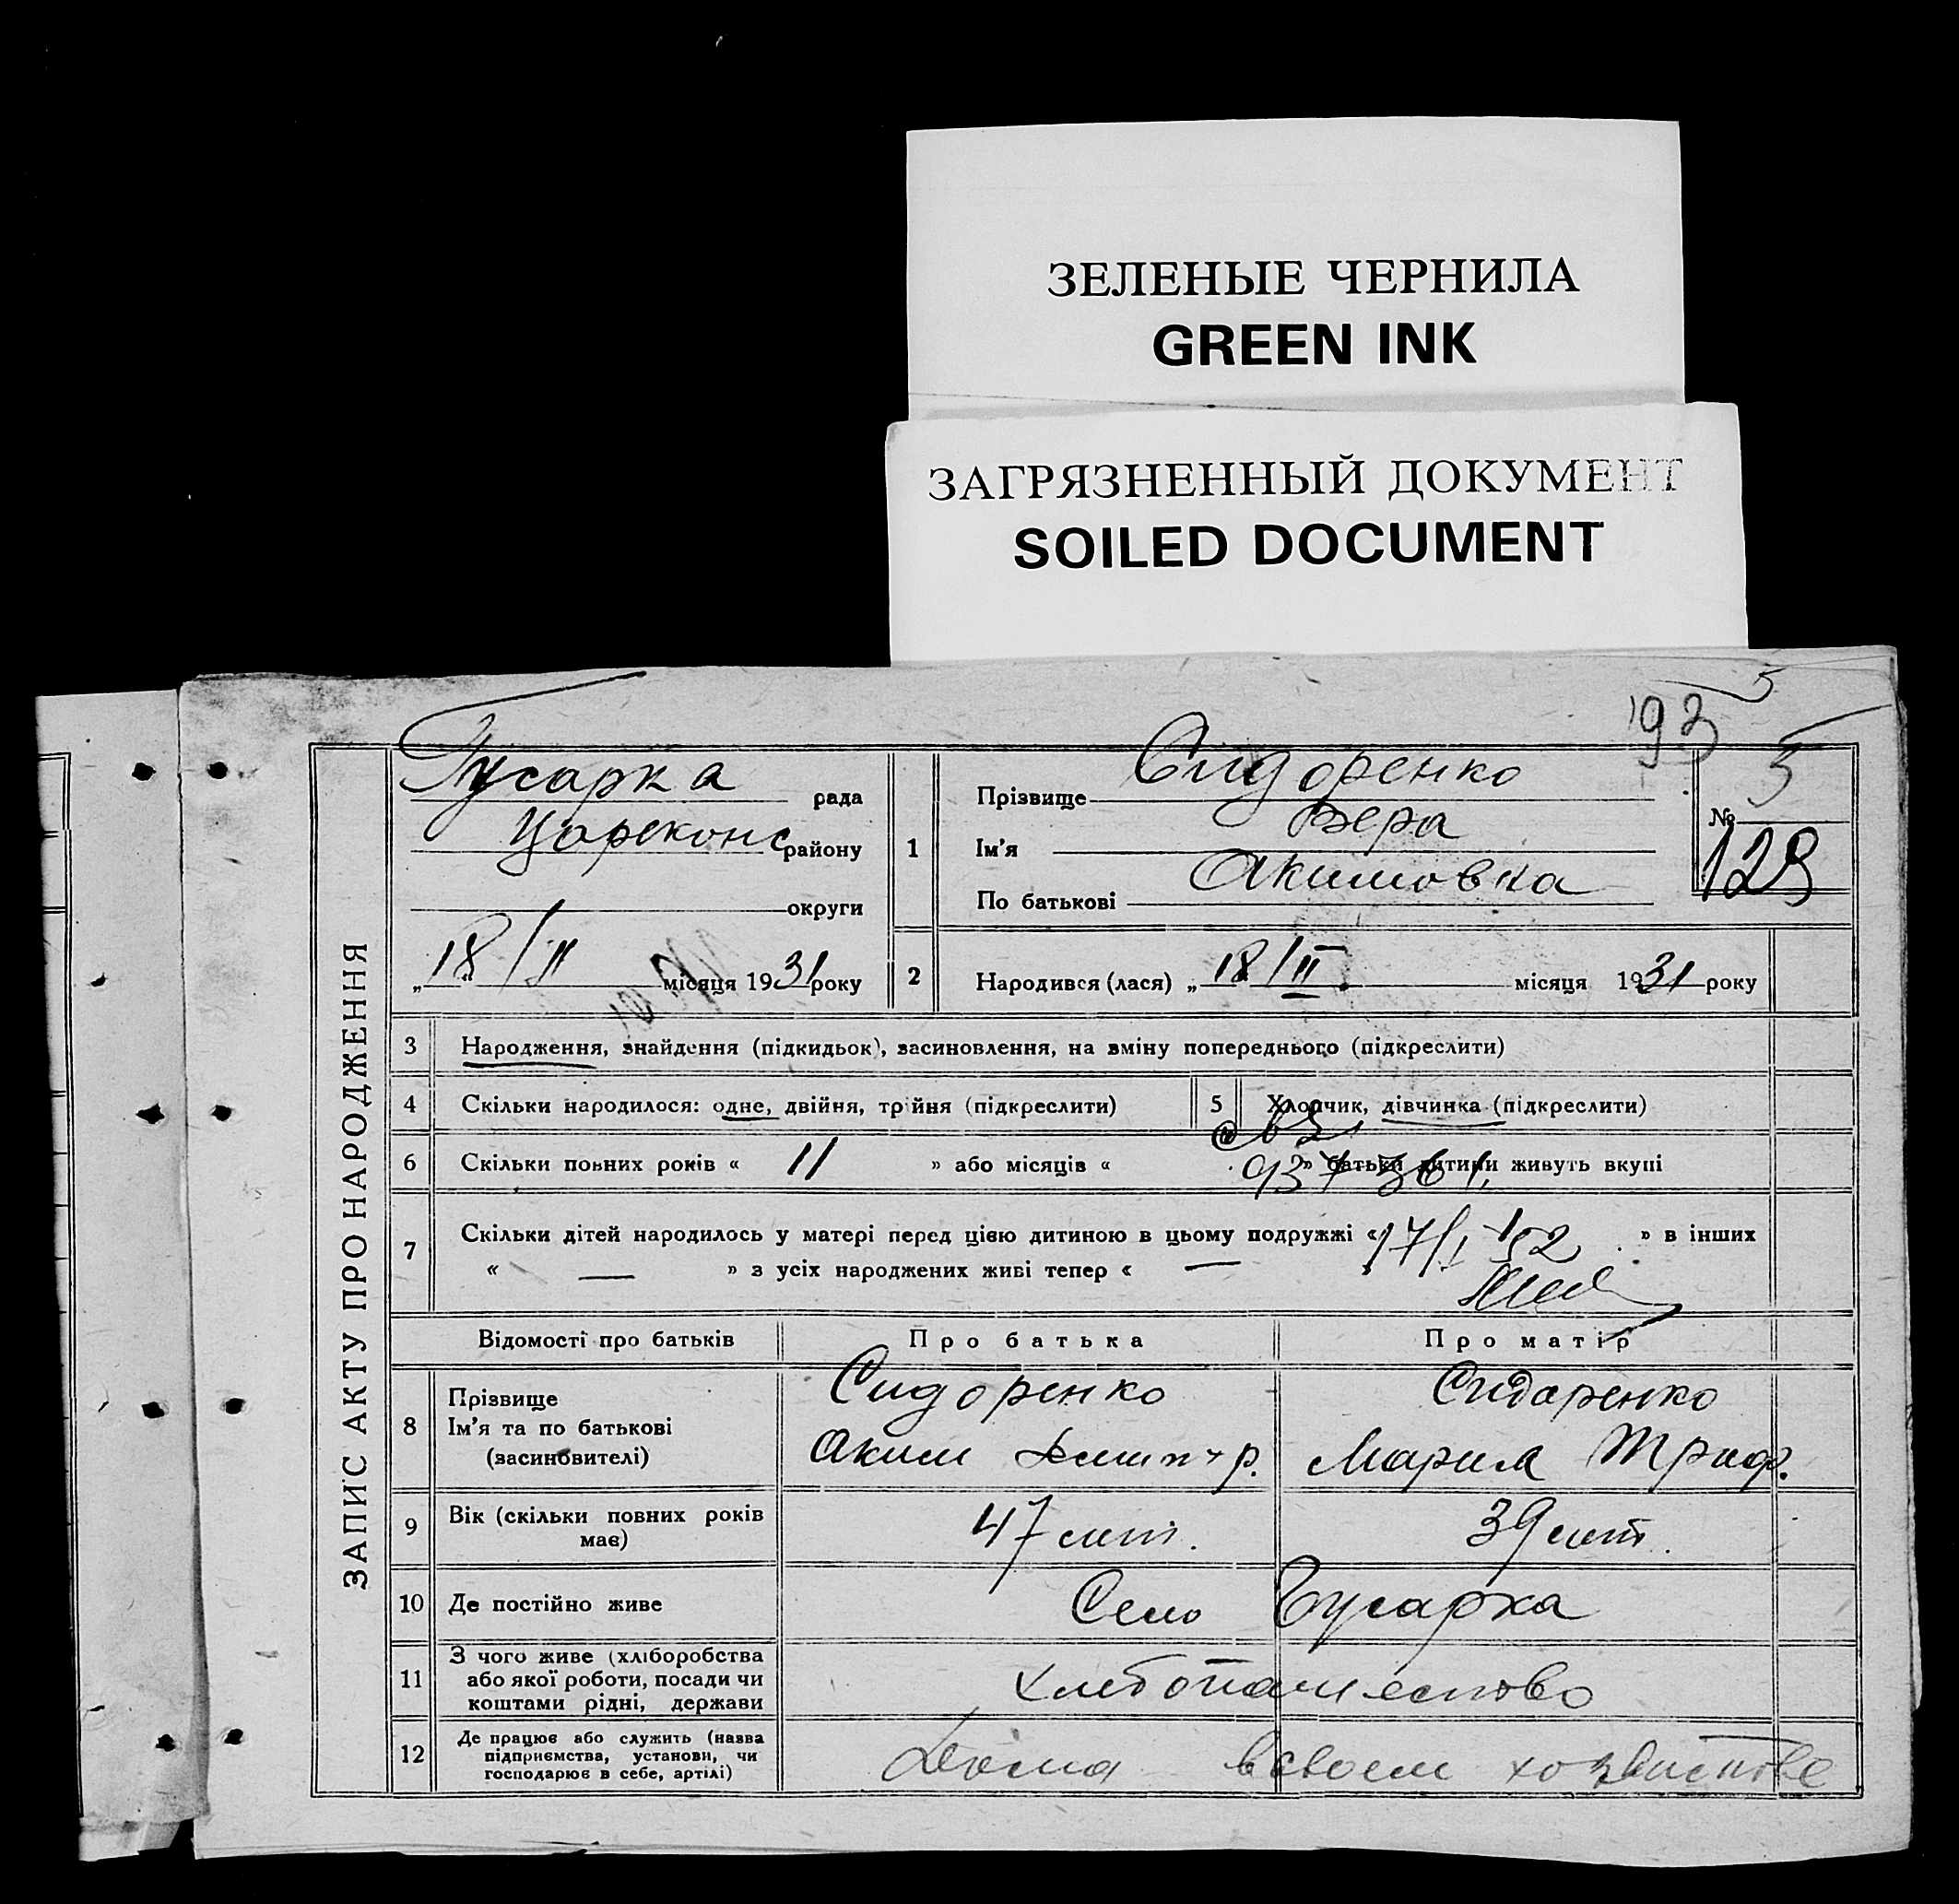 ЗЕЛЕНЫЕ ЧЕРНИЛА
GREEN INK
ЗАГРЯЗНЕННЫЙ ДОКУМЕНТ
SOILED DOCUMENT
5
193
ЗАПИС АКТУ ПРО НАРОДЖЕННЯ
Гусарка рада
Цареконс району
округи
„18/II місяця 1931 року
1
Прізвище Сидоренко
Ім'я Вера
По батькові Акимовна
№ 5
128
2 Народився (лася) „18/II місяця 1931 року
3 Народження, знайдення (підкидьок), засиновлення, на зміну попереднього (підкреслити)
4 Скільки народилося: одне, двійня, трійня (підкреслити)
5 Хлопчик, дівчинка (підкреслити)
6 Скільки повних років « 11 » або місяців « » батьки дитини живуть вкупі
937361
7 Скільки дітей народилось у матері перед цією дитиною в цьому подружжі « » в інших
17/I 52
« — » з усіх народжених живі тепер « —
Відомості про батьків Про батька Про матір
8 Прізвище Ім'я та по батькові (засиновителі)
Сидоренко Сидаренко
Аким Дмитр. Мария Триф.
9 Вік (скільки повних років має) 47 лет. 39 лет.
10 Де постійно живе Село Гусарка
11 З чого живе (хліборобства або якої роботи, посади чи коштами рідні, держави
хлебопашество
12 Де працює або служить (назва підприємства, установи, чи господарює в себе, артілі)
Дома в своем хозяистве